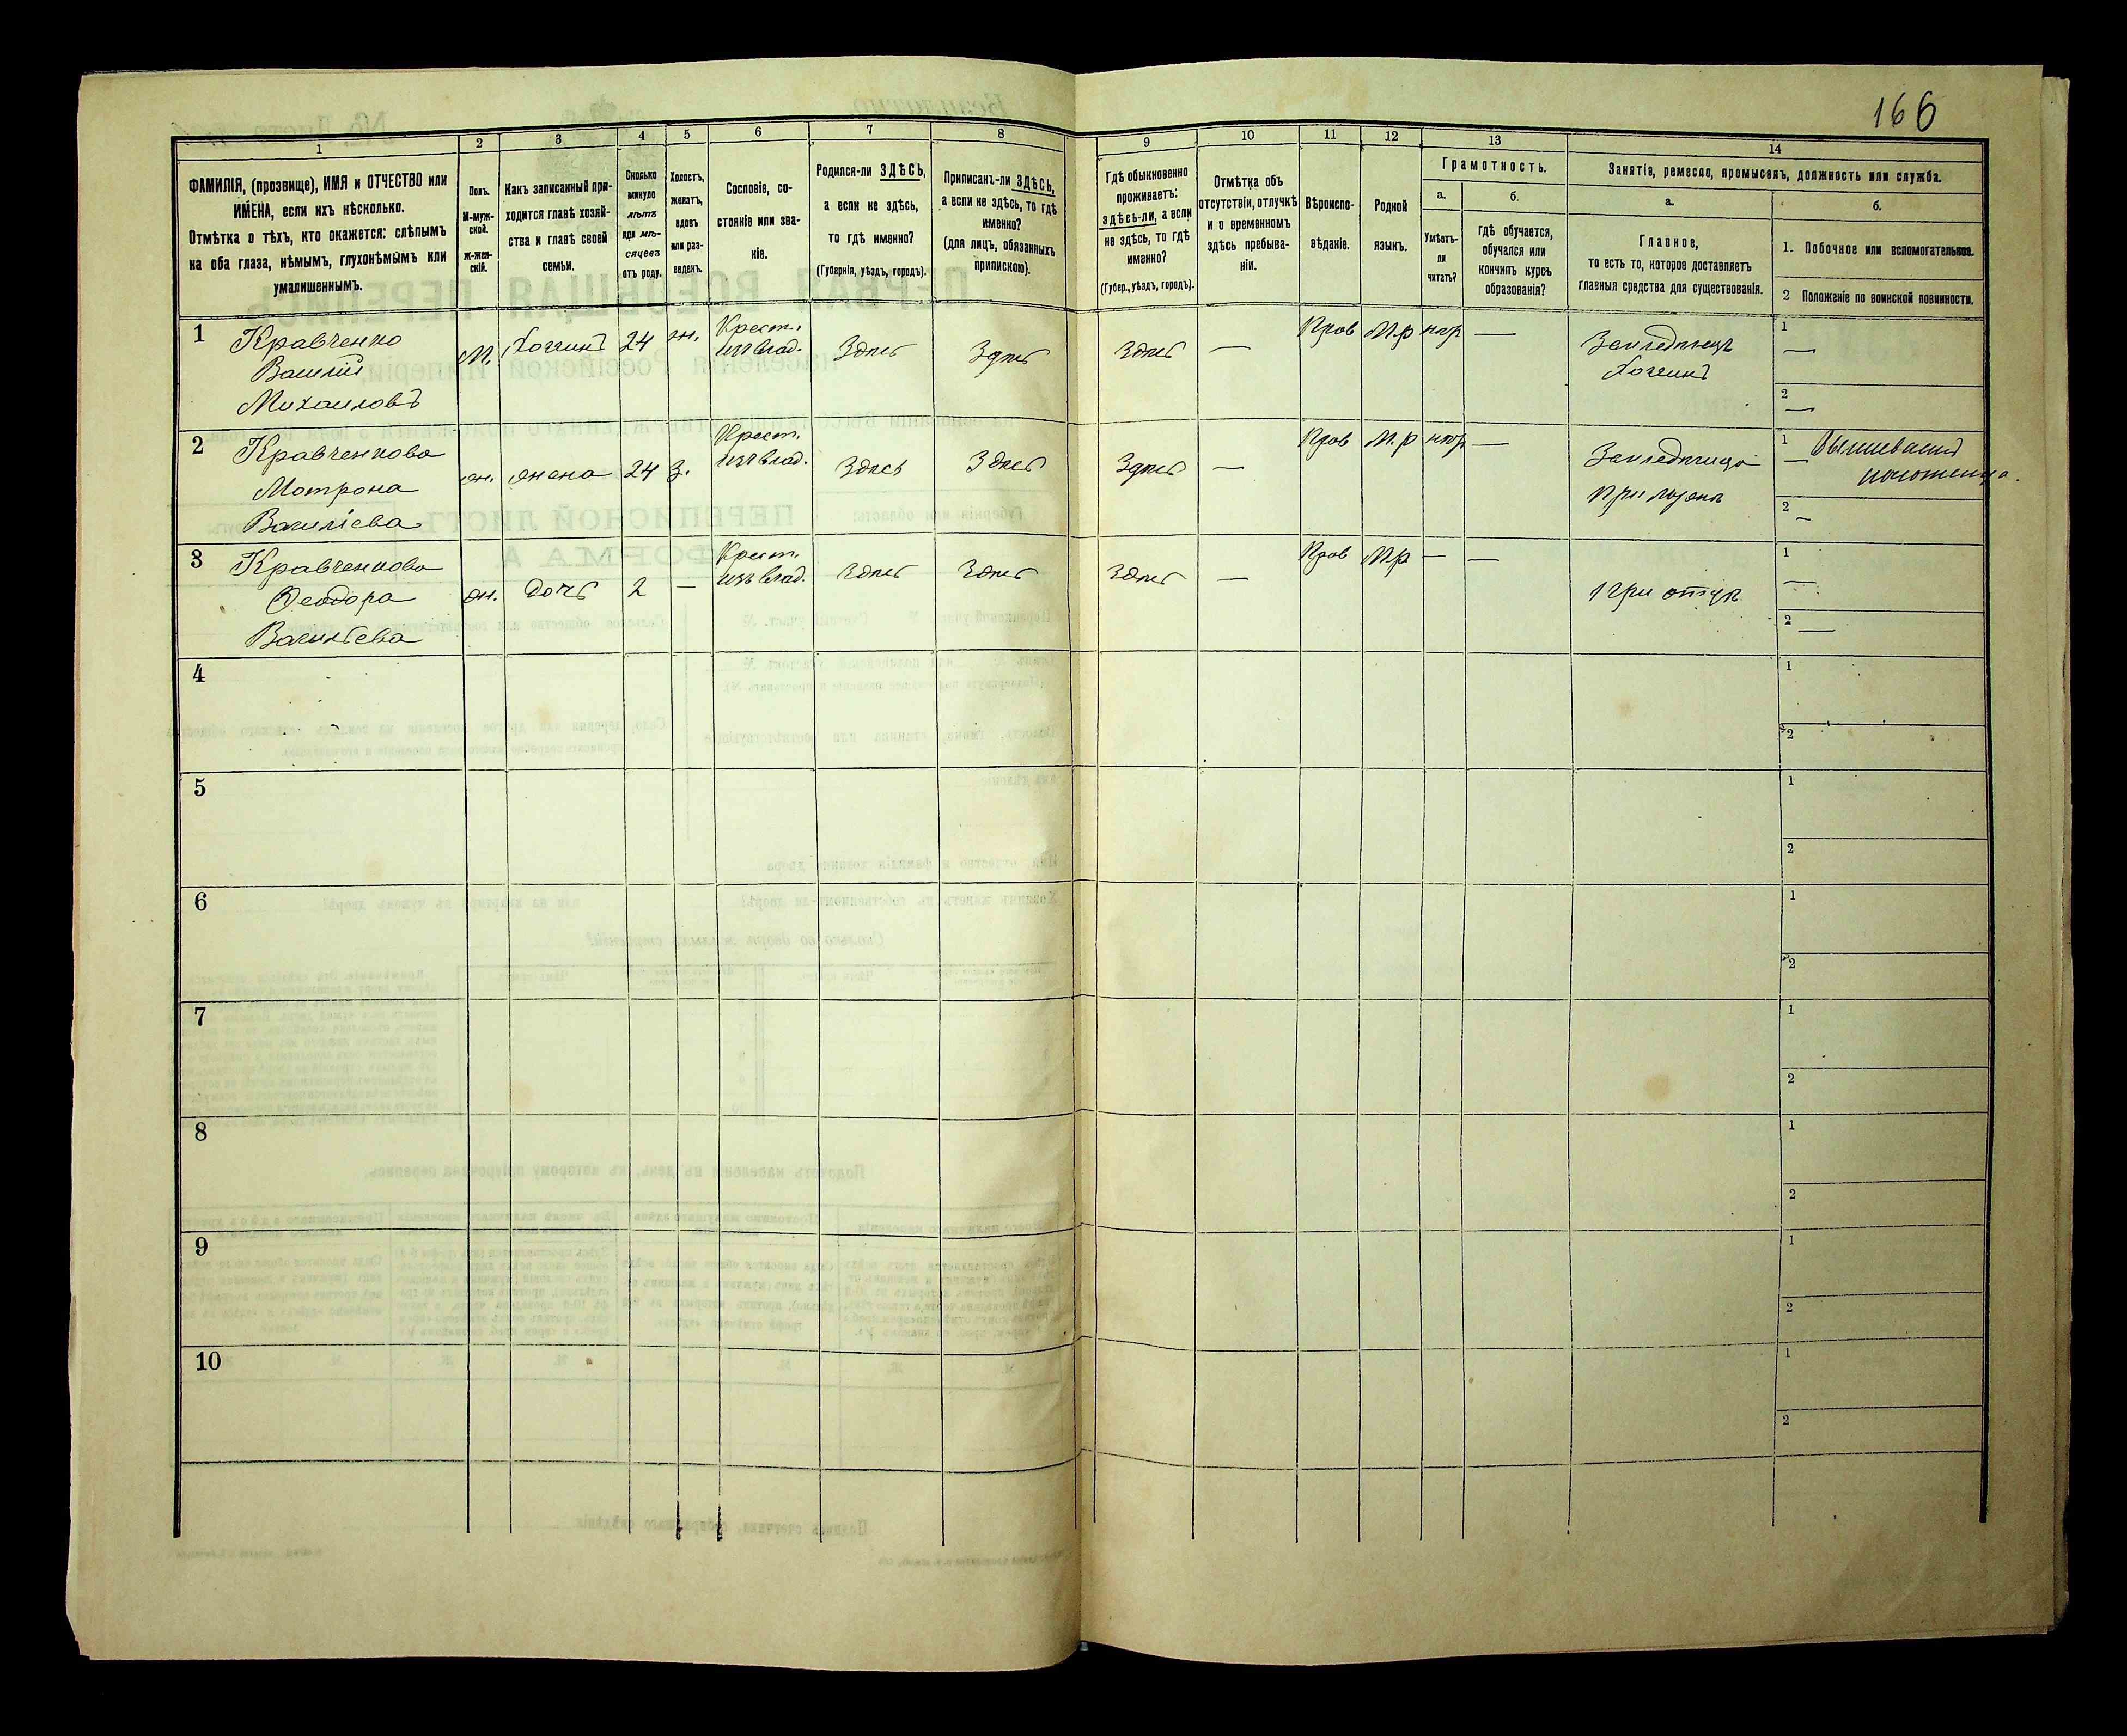 166
1
2
3
4
5
6
7
8
9
10
11
12
13
14
ФАМИЛІЯ, (прозвище), ИМЯ и ОТЧЕСТВО или
ИМЕНА, если ихъ нѣсколько.
Отмѣтка о тѣхъ, кто окажется: слѣпымъ
на оба глаза, нѣмымъ, глухонѣмымъ или
умалишеннымъ.
Полъ.
М-муж-
ской.
ж-жен-
скій.
Какъ записанный при-
ходится главѣ хозяй-
ства и главѣ своей
семьи.
Сколько
минуло
лѣтъ
или мѣ-
сяцевъ
отъ роду.
Холостъ,
женатъ,
вдовъ
или раз-
веденъ.
Сословіе, со-
стояніе или зва-
ніе.
Родился-ли ЗДѢСЬ,
а если не здѣсь,
то гдѣ именно?
(Губернія, уѣздъ, городъ).
Приписанъ-ли ЗДѢСЬ,
а если не здѣсь, то гдѣ
именно?
(для лицъ, обязанныхъ
припискою).
Гдѣ обыкновенно
проживаетъ:
здѣсь-ли, а если
не здѣсь, то гдѣ
именно?
(Губер., уѣздъ, городъ).
Отмѣтка объ
отсутствіи, отлучкѣ
и о временномъ
здѣсь пребыва-
ніи.
Вѣроиспо-
вѣданіе.
Родной
языкъ.
Грамотность.
а.
Умѣетъ-
ли
читать?
б.
Гдѣ обучается,
обучался или
кончилъ курсъ
образованія?
Занятіе, ремесло, промыселъ, должность или служба.
а.
Главное,
то есть то, которое доставляетъ
главныя средства для существованія.
б.
1. Побочное или вспомогательное.
2 Положеніе по воинской повинности.
1 Кравченко
Василій
Михаиловъ
М.
Хозяинъ
24
жн.
Крест.
изъ влад.
Здѣсь
Здѣсь
Здѣсь
—
Прав
М.р
нѣт
—
Земледѣлецъ
Хозяинъ
1
—
2
—
2 Кравченкова
Мотрона
Василіева
жн.
жена
24
З.
Крест.
изъ влад.
Здѣсь
Здѣсь
Здѣсь
—
Прав
М.р
нѣт
—
Земледѣлица
При мужѣ
1
—
2
—
3 Кравченкова
Ѳеодора
Васильева
жн.
дочь
2
—
Крест.
изъ влад.
Здѣсь
Здѣсь
Здѣсь
—
Прав
М.р
—
—
При отцѣ
1
—
2
—
4
1
2
5
1
2
6
1
2
7
1
2
8
1
2
9
1
2
10
1
2